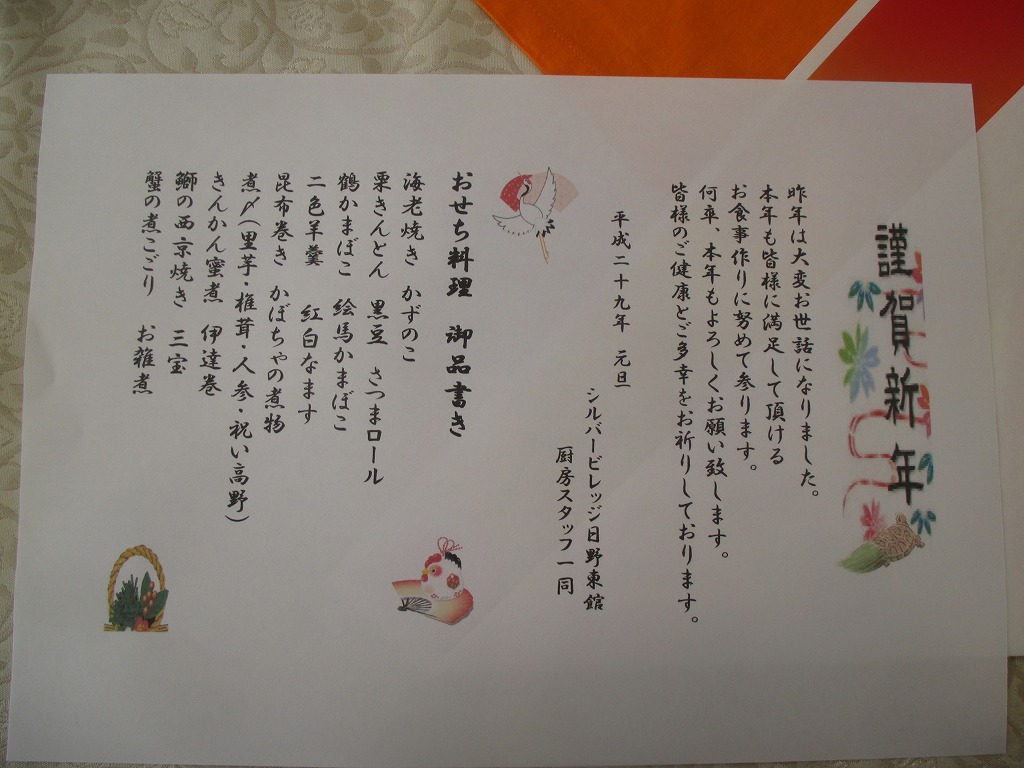 謹賀新年
昨年は大変お世話になりました。
本年も皆様に満足して頂ける
お食事作りに努めて参ります。
何卒、本年もよろしくお願い致します。
皆様のご健康とご多幸をお祈りしております。
平成二十九年　元旦
シルバービレッジ日野東館
厨房スタッフ一同
おせち料理　御品書き
海老焼き　かずのこ
栗きんとん　黒豆　さつまロール
鶴かまぼこ　絵馬かまぼこ
二色羊羹　紅白なます
昆布巻き　かぼちゃの煮物
煮〆(里芋・椎茸・人参・祝い高野)
きんかん蜜煮　伊達巻
鰤の西京焼き　三宝
蟹の煮こごり　お雑煮